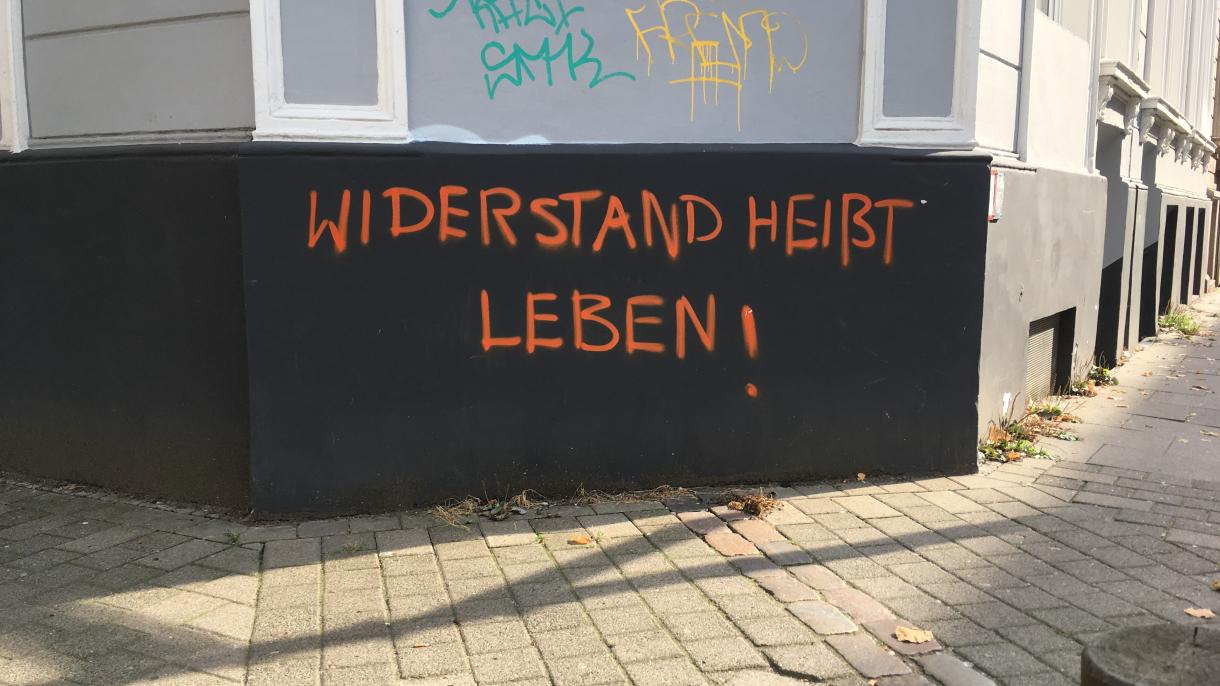 SMK
WIDERSTAND HEIßT
LEBEN!